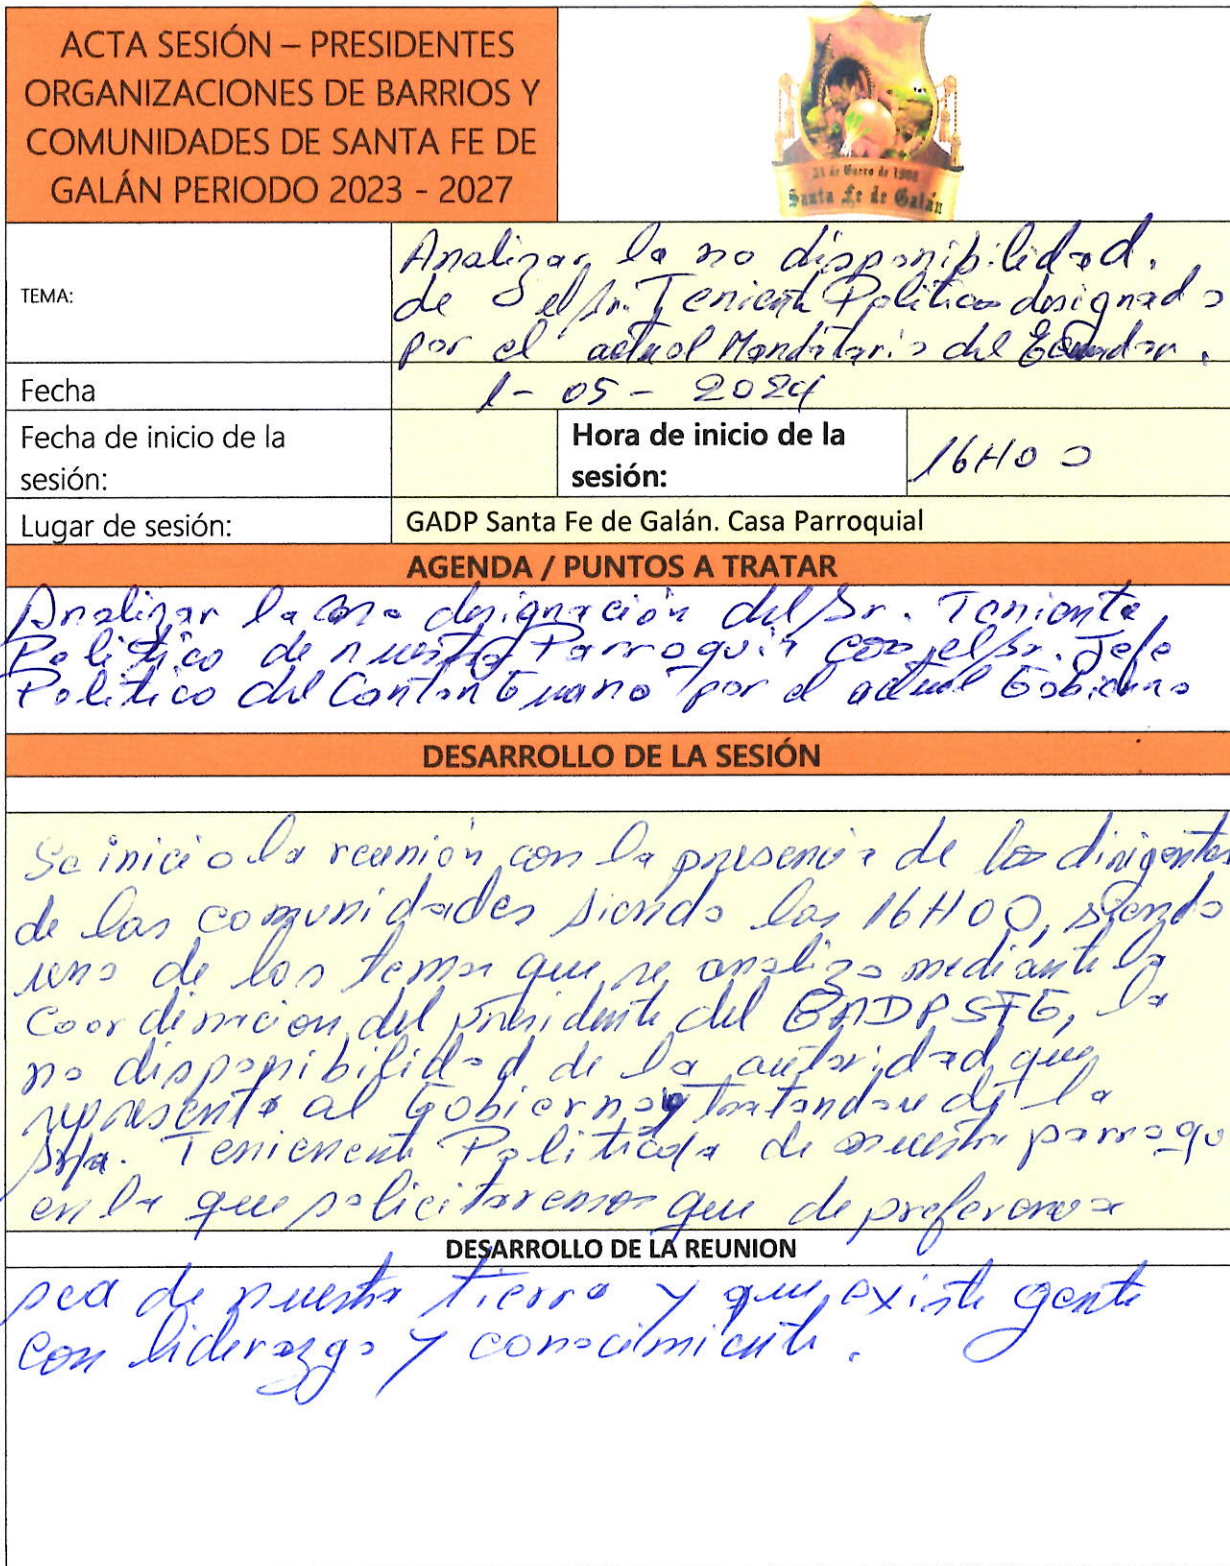 ACTA SESIÓN – PRESIDENTES
ORGANIZACIONES DE BARRIOS Y
COMUNIDADES DE SANTA FE DE
GALÁN PERIODO 2023 - 2027
21 de Enero de 1908
Santa Fe de Galán
TEMA:
Analizar la no disponibilidad.
de el Sr. Teniente Politico designado
por el actual Mandatario del Ecuador.
Fecha
1-05-2024
Fecha de inicio de la
sesión:
Hora de inicio de la
sesión:
16H00
Lugar de sesión:
GADP Santa Fe de Galán. Casa Parroquial
AGENDA / PUNTOS A TRATAR
Analizar la no designación del Sr. Teniente
Politico de nuestra Parroquia con el Sr. Jefe
Politico del Canton Guano por el actual Gobierno
DESARROLLO DE LA SESIÓN
Se inicio la reunión con la presencia de los dirigentes
de las comunidades siendo las 16H00, siendo
uno de los temas que se analizo mediante la
Coordinacion del presidente del GADPSFG, la
no disponibilidad de la autoridad que
representa al Gobierno y tratandose de la
Srta. Politica de nuestra parroqu
en la que solicitaremos que de preferencia
DESARROLLO DE LA REUNION
sea de nuestra tierra y que existe gente
con liderazgo y conocimiento.